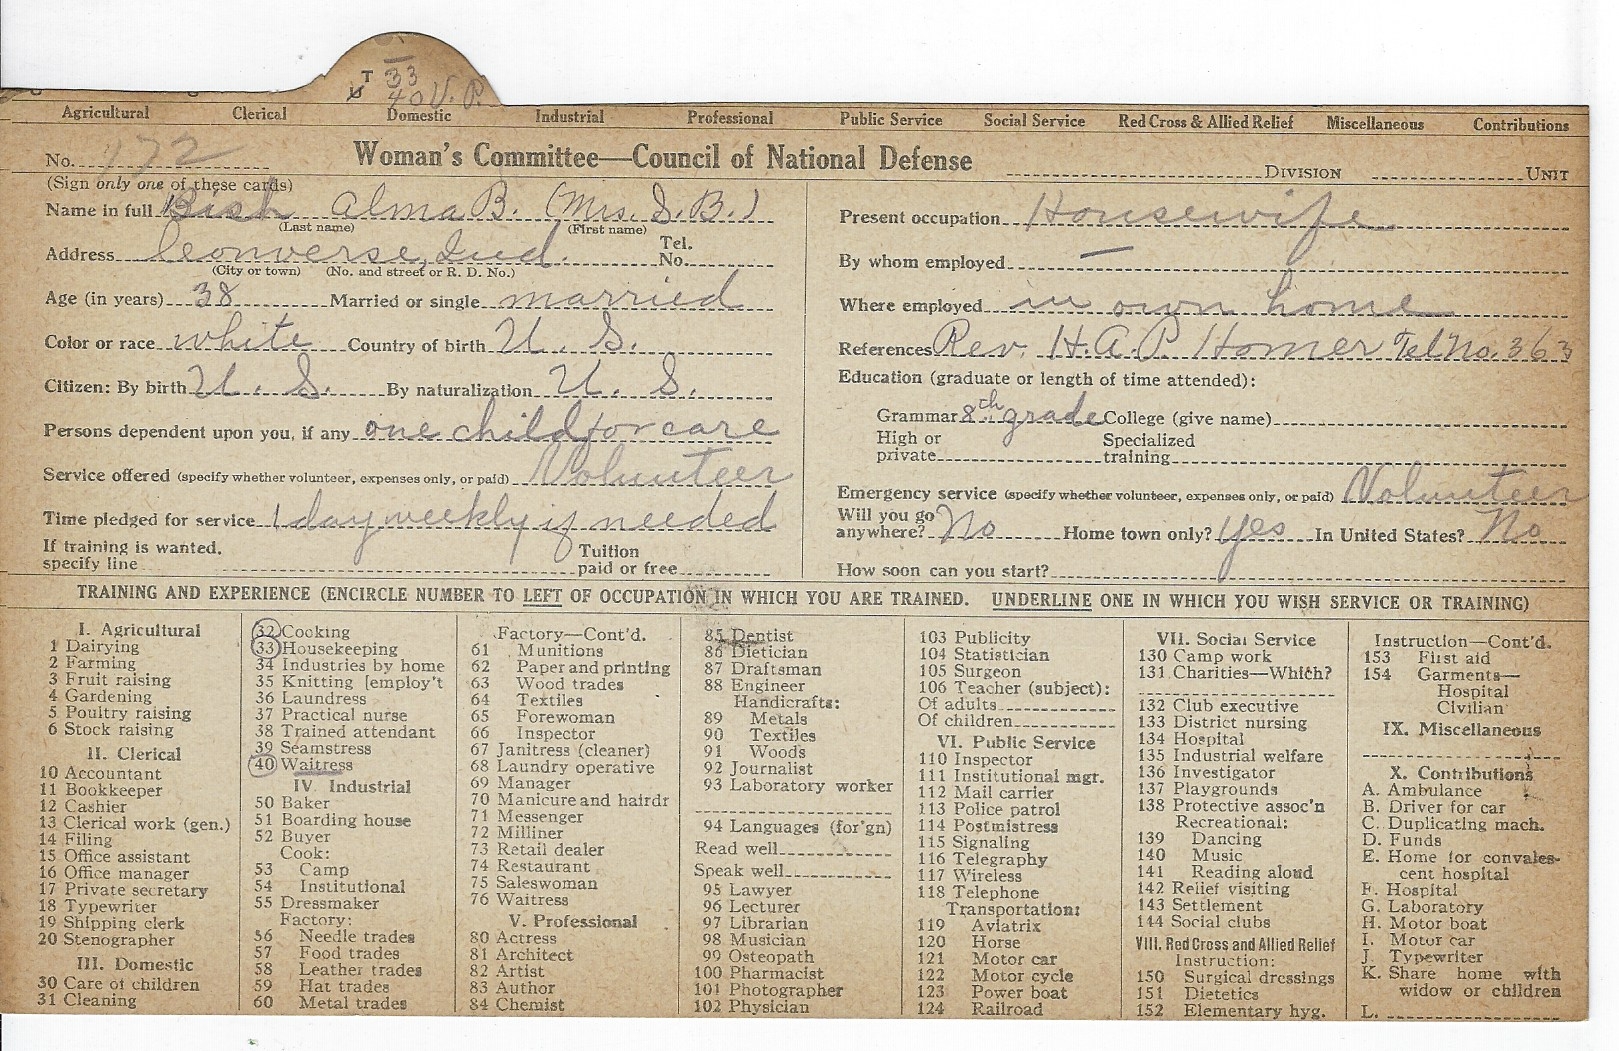 T 33
40 V. P.
Agricultural Clerical Domestic Industrial Professional Public Service Social Service Red Cross & Allied Relief Miscellaneous Contributions
No. 172 Woman's Committee—Council of National Defense DIVISION UNIT
(Sign only one of these cards)
Name in full Bish Alma B. (Mrs. S. B.)
(Last name) (First name)
Address Converse, Ind. Tel. No.
(City or town) (No. and street or R. D. No.)
Age (in years) 38 Married or single married
Color or race white Country of birth U. S.
Citizen: By birth U. S. By naturalization U. S.
Persons dependent upon you, if any one child for care
Service offered (specify whether volunteer, expenses only, or paid) Volunteer
Time pledged for service 1 day weekly if needed
If training is wanted, specify line Tuition paid or free
Present occupation Housewife
By whom employed —
Where employed in own home
References Rev. H. A. P. Homer Tel No. 363
Education (graduate or length of time attended):
Grammar 8th grade College (give name)
High or private Specialized training
Emergency service (specify whether volunteer, expenses only, or paid) Volunteer
Will you go anywhere? No Home town only? Yes In United States? No
How soon can you start?
TRAINING AND EXPERIENCE (ENCIRCLE NUMBER TO LEFT OF OCCUPATION IN WHICH YOU ARE TRAINED. UNDERLINE ONE IN WHICH YOU WISH SERVICE OR TRAINING)
I. Agricultural
1 Dairying
2 Farming
3 Fruit raising
4 Gardening
5 Poultry raising
6 Stock raising
II. Clerical
10 Accountant
11 Bookkeeper
12 Cashier
13 Clerical work (gen.)
14 Filing
15 Office assistant
16 Office manager
17 Private secretary
18 Typewriter
19 Shipping clerk
20 Stenographer
III. Domestic
30 Care of children
31 Cleaning
32 Cooking
33 Housekeeping
34 Industries by home
35 Knitting [employ't
36 Laundress
37 Practical nurse
38 Trained attendant
39 Seamstress
40 Waitress
IV Industrial
50 Baker
51 Boarding house
52 Buyer
Cook:
53 Camp
54 Institutional
55 Dressmaker
Factory:
56 Needle trades
57 Food trades
58 Leather trades
59 Hat trades
60 Metal trades
Factory—Cont'd.
61 Munitions
62 Paper and printing
63 Wood trades
64 Textiles
65 Forewoman
66 Inspector
67 Janitress (cleaner)
68 Laundry operative
69 Manager
70 Manicure and hairdr
71 Messenger
72 Milliner
73 Retail dealer
74 Restaurant
75 Saleswoman
76 Waitress
V. Professional
80 Actress
81 Architect
82 Artist
83 Author
84 Chemist
85 Dentist
86 Dietician
87 Draftsman
88 Engineer
Handicrafts:
89 Metals
90 Textiles
91 Woods
92 Journalist
93 Laboratory worker
94 Languages (for'gn)
Read well
Speak well
95 Lawyer
96 Lecturer
97 Librarian
98 Musician
99 Osteopath
100 Pharmacist
101 Photographer
102 Physician
103 Publicity
104 Statistician
105 Surgeon
106 Teacher (subject):
Of adults
Of children
VI. Public Service
110 Inspector
111 Institutional mgr.
112 Mail carrier
113 Police patrol
114 Postmistress
115 Signaling
116 Telegraphy
117 Wireless
118 Telephone
Transportation:
119 Aviatrix
120 Horse
121 Motor car
122 Motor cycle
123 Power boat
124 Railroad
VII. Social Service
130 Camp work
131 Charities—Which?
132 Club executive
133 District nursing
134 Hospital
135 Industrial welfare
136 Investigator
137 Playgrounds
138 Protective assoc'n
Recreational:
139 Dancing
140 Music
141 Reading aloud
142 Relief visiting
143 Settlement
144 Social clubs
VIII. Red Cross and Allied Relief
Instruction:
150 Surgical dressings
151 Dietetics
152 Elementary hyg.
Instruction—Cont'd.
153 First aid
154 Garments—
Hospital
Civilian
IX. Miscellaneous
X. Contributions
A. Ambulance
B. Driver for car
C. Duplicating mach.
D. Funds
E. Home for convales-
cent hospital
F. Hospital
G. Laboratory
H. Motor boat
I. Motor car
J. Typewriter
K. Share home with
widow or children
L.